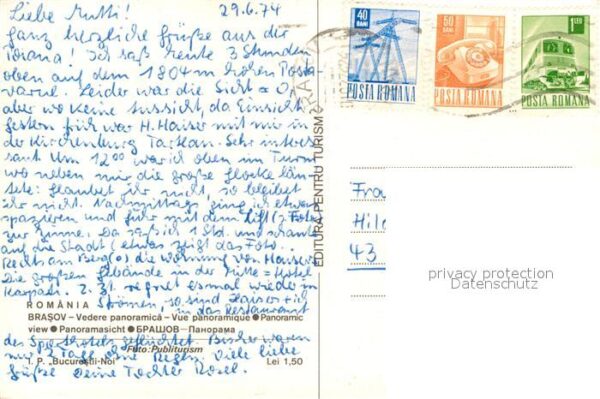 Liebe Mutti! 29.6.74
ganz herzliche Grüße aus der
Poiana! Ich saß heute 3 Stunden
oben auf dem 1804 m hohen Posta-
varul. Leider war die Sicht = 0,
aber wo keine Aussicht, da Einsicht.
Gestern früh war H. Hauser mit mir in
der Kirchenburg Tartlau. Sehr interes-
sant. Um 12 00 war ich oben im Turm
wo neben mir die große Glocke läu-
tete: glaubet ihr nicht, so begibet
ihr nicht. Nachmittags ging ich etwas
spazieren und fuhr mit dem Lift (s. Foto)
zur Zinne. Da saß ich 1 Std. und schaute
auf die Stadt (etwas zeigt das Foto..
Rechts am Berg (o) die Wohnung von Hauser
Die großen Gebäude in der Mitte = Hotel
Karpati. Z. Zt. regnet es mal wieder in
Strömen, so sind Hauser + ich
in das Restaurant
des Sporthotels geflüchtet. Bisher waren
nur 2 Tage ohne Regen. Viele liebe
Grüße Deine Tochter Rosel.
ROMÂNIA
BRAŞOV – Vedere panoramică – Vue panoramique ● Panoramic
view ● Panoramasicht ● БРАШОВ – Панорама
Foto: Publiturism
I. P. „Bucureştii-Noi" Lei 1,50
EDITURA PENTRU TURISM
40 BANI
POSTA ROMANA
50 BANI
POSTA ROMANA
1 LEU
POSTA ROMANA
Fra
Hild
43
privacy protection
by oldthing.de